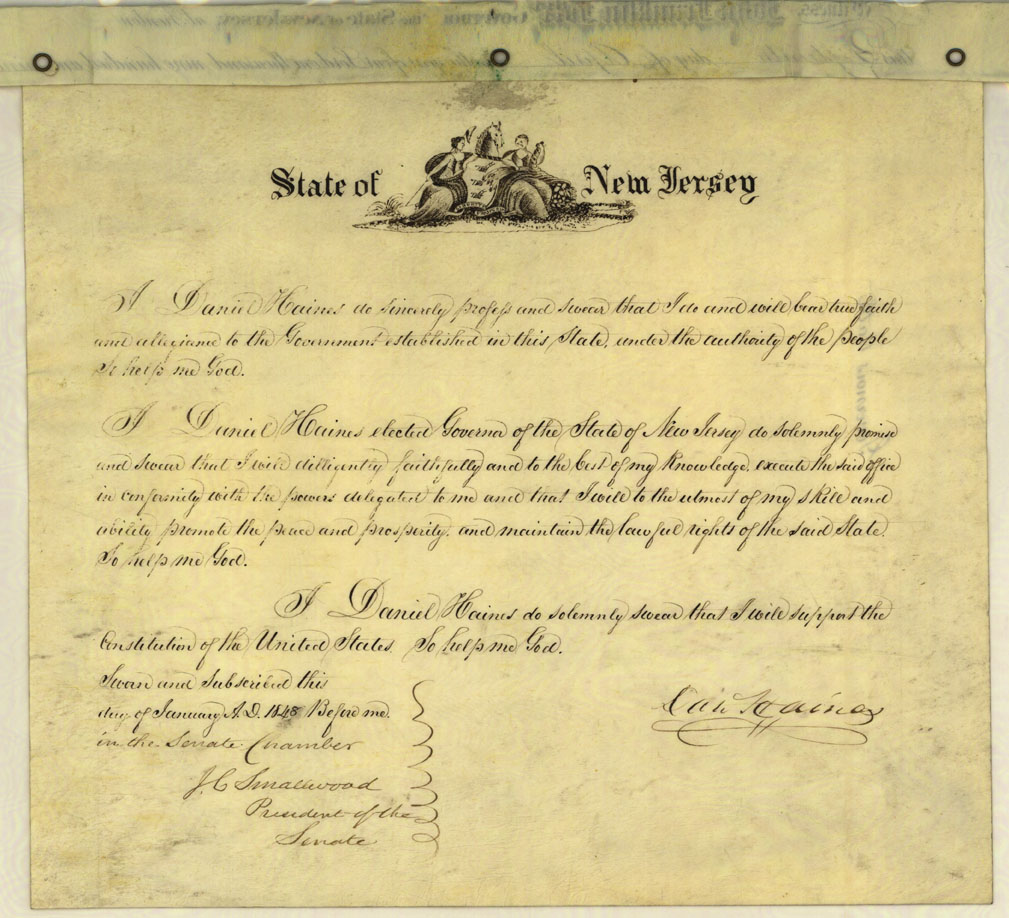 State of New Jersey
I Daniel Haines do sincerely profess and swear that I do and will bear true faith
and allegiance to the Government established in this State, under the authority of the people
So help me God.
I Daniel Haines elected Governor of the State of New Jersey do solemnly promise
and swear that I will dilligently faithfully and to the best of my knowledge, execute the said office
in conformity with the powers delegated to me and that I will to the utmost of my skill and
ability promote the peace and prosperity, and maintain the lawful rights of the said State.
So help me God.
I Daniel Haines do solemnly swear that I will support the
Constitution of the United States So help me God.
Sworn and Subscribed this
day of January A.D. 1848 Before me.
in the Senate Chamber
J C Smallwood
President of the
Senate
Dan Haines